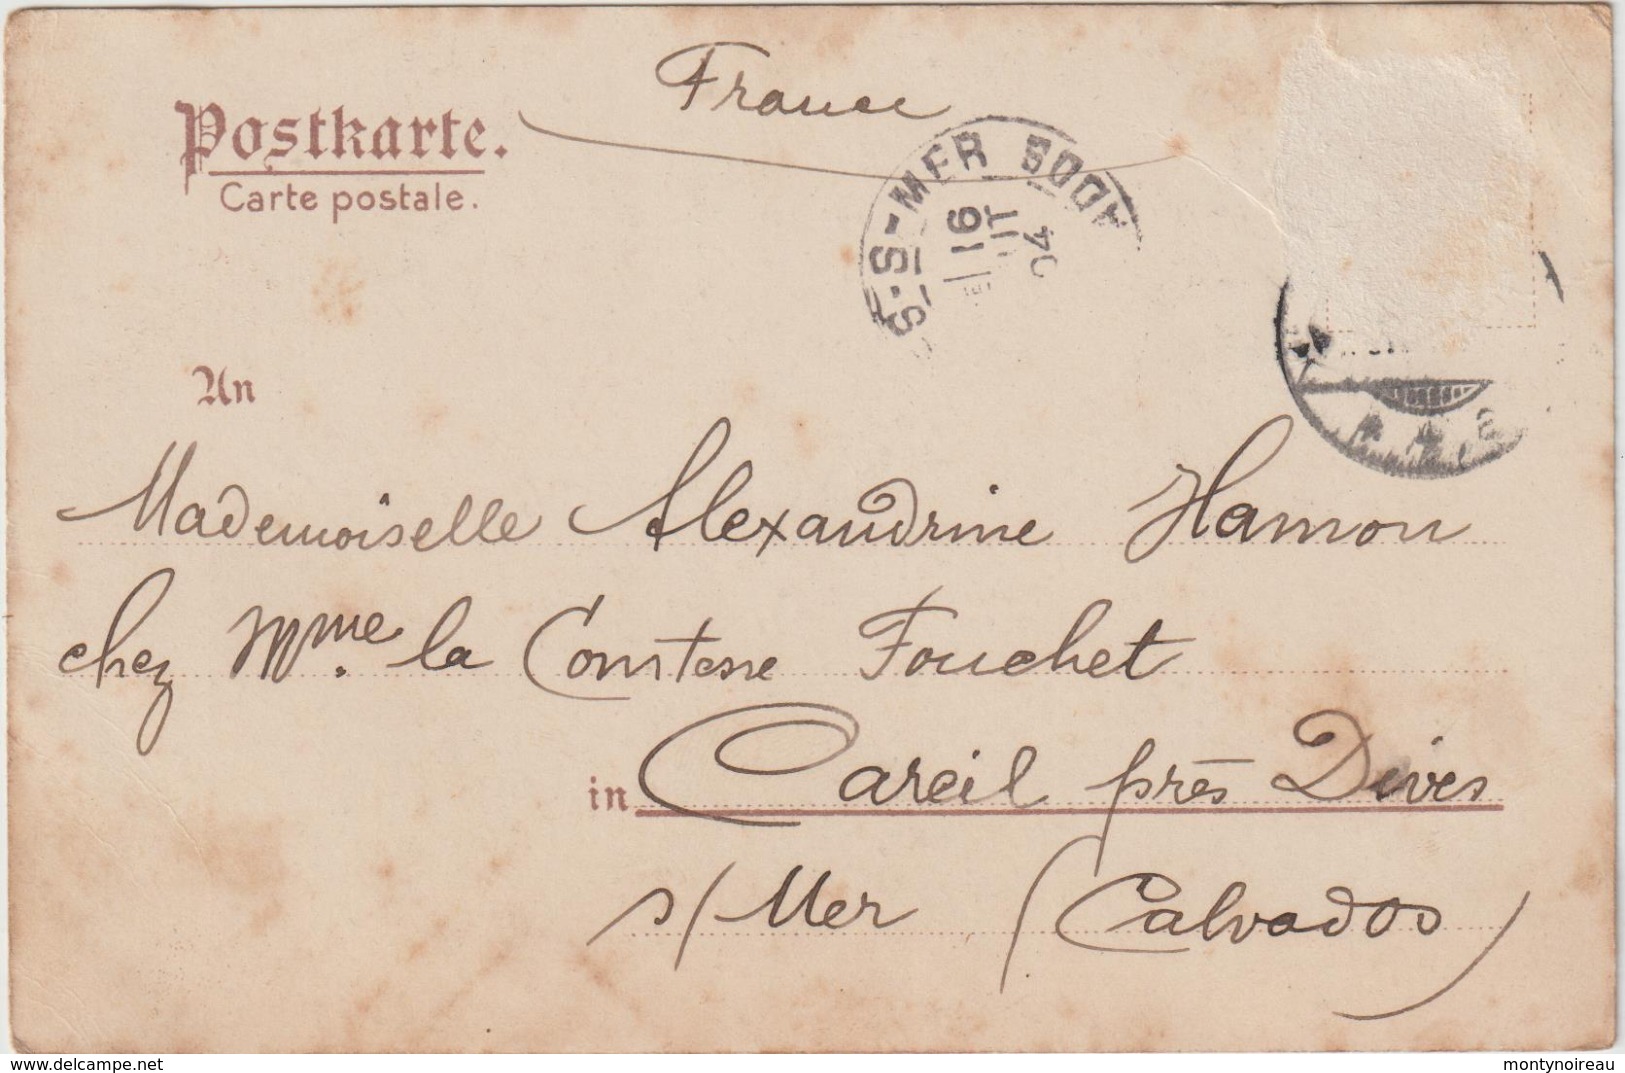 France
Postkarte.
Carte postale.
S-S-MER
16
04
An
Mademoiselle Alexandrine Hamon
chez Mme. la Comtesse Fouchet
in Careil près Dives
s/ Mer (Calvados)
https://www.delcampe.net
montynoireau